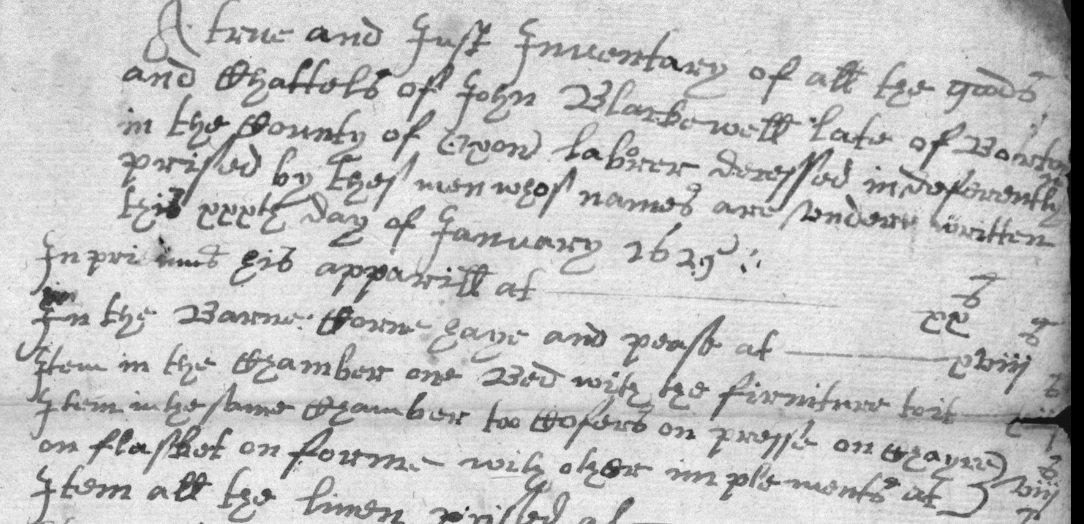 A true and Just Inventary of all the goods
and Chattels of John Blackewell late of Bowrton
in the County of Oxon laborer decessed indeferently
prised by thes men whos names are vnder written
this xxxth day of January 1629
Inprimis his apparill at xx s
In the Barne Corne haye and pease at xlviij s
Item in the Chamber one Bed with the firniture to it
Item in the same Chamber too Cofers on presse on Chayre
on flasket on forme with other implements at viij s
Item all the linen prissed at